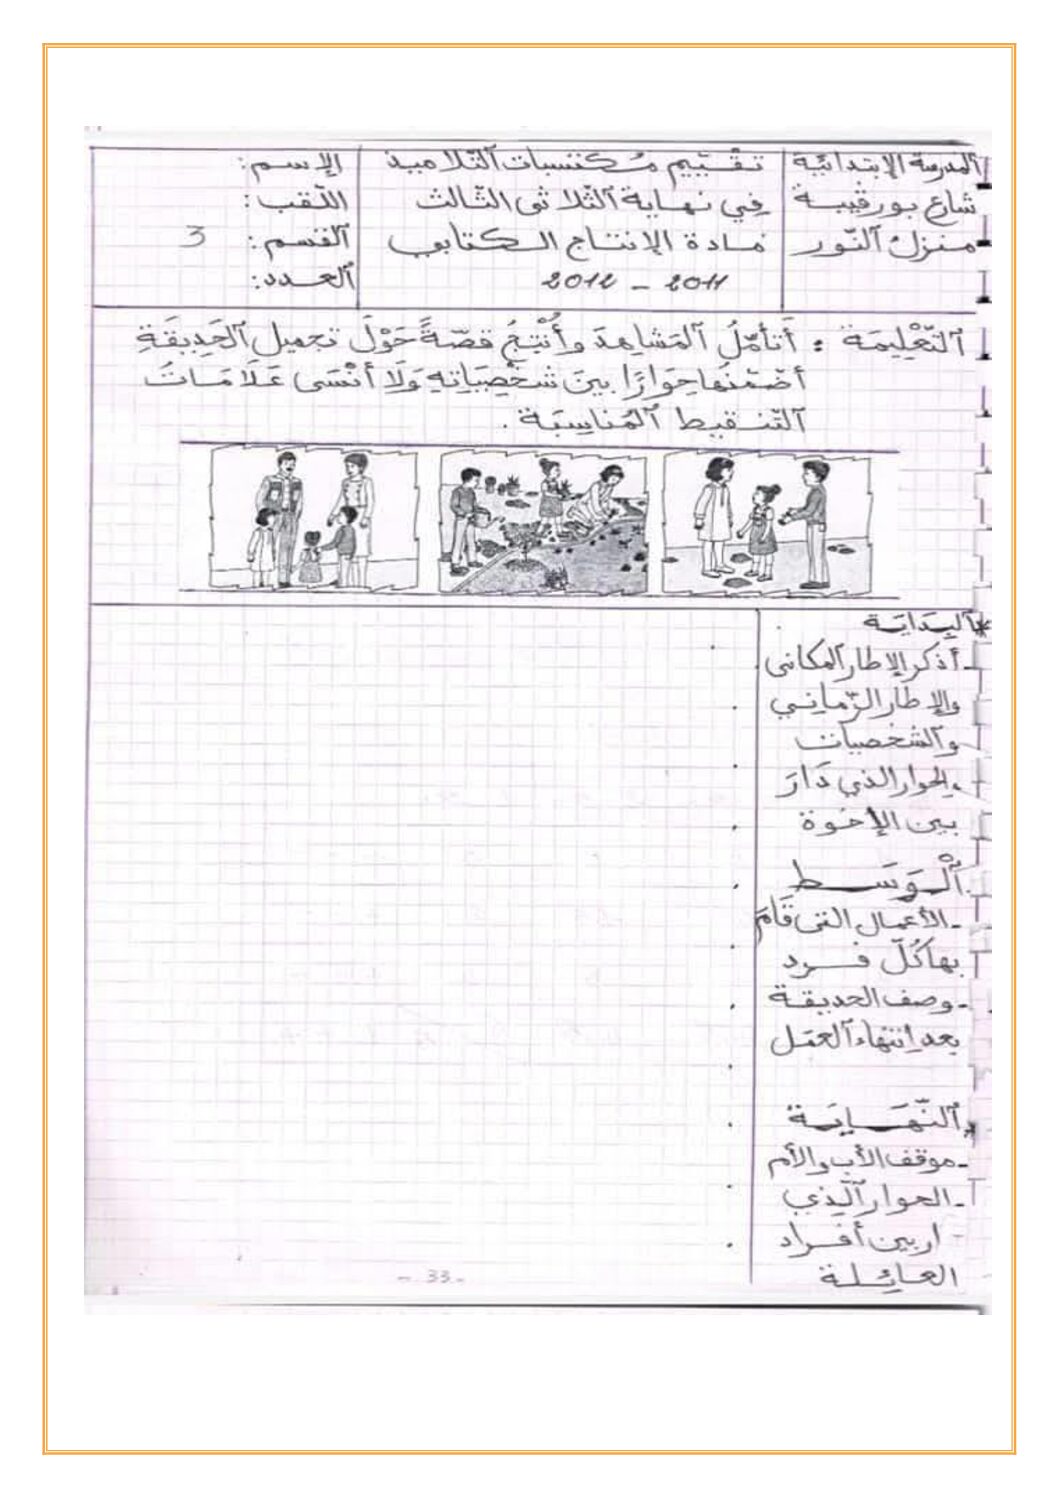 المدرسة الإبتدائية
شارع بورقيبة
منزل ٱلنّور
تقييم مكتسبات ٱلتّلاميذ
في نهاية ٱلثّلاثي الثّالث
مادة الإنتاج الكتابي
2011 - 2012
الإسم:
اللّقب:
ٱلقسم: 3
ٱلعدد:
ٱلتّعْلِيمَة : أَتأمّلُ ٱلمَشاهِدَ وأُنْتِجُ قصّةً حَوْلَ تجميل ٱلحَدِيقَةِ
أضَمّنُها حِوَارًا بينَ شَخْصِيَاتِهِ وَلَا أنْسَى عَلَامَاتُ
ٱلتّنقيط ٱلمُناسِبَة .
*ٱلبِدَايَة
- أذكر الإطار ٱلمكاني
والإطار الزّماني
وٱلشخصيات
- الحوار الذي دَارَ
بين الإخوة
ٱلْوَسَط
- الأعمال التي قَامَ
بها كُلّ فرد
- وصف الحديقة
بعد إنتهاء ٱلعمَل
ٱلنّهَايَة
- موقف الأب والأم
- الحوار ٱلّذي
ار بين أفراد
العائِلة
- 33 -